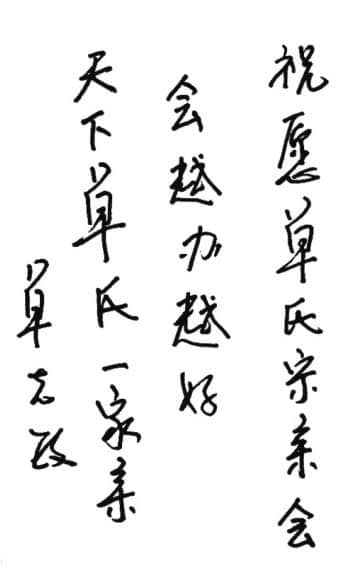 祝愿单氏宗亲会
会越办越好
天下单氏一家亲
单志政